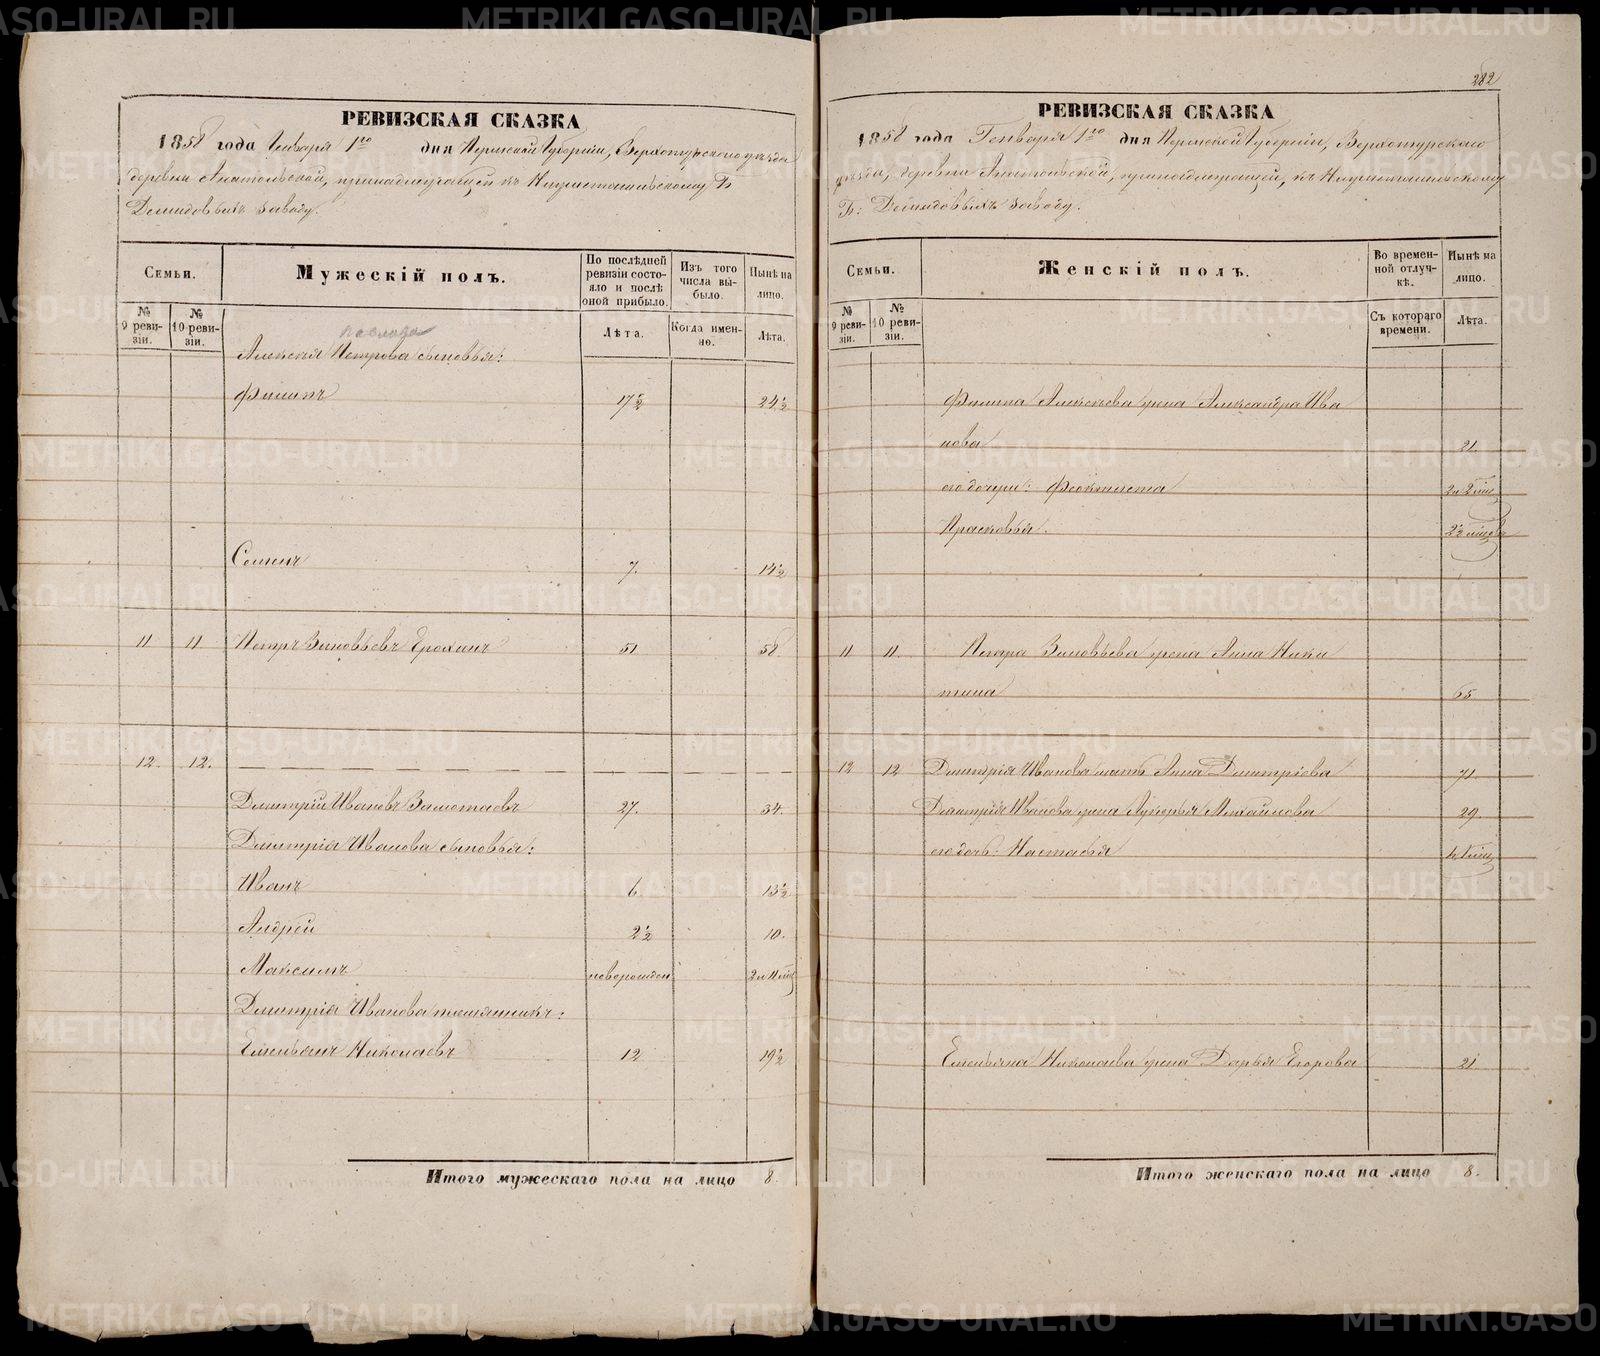 РЕВИЗСКАЯ СКАЗКА
1858 года Генваря 1го дня Пермской Губернии, Верхотурского уезда
деревни Анатольской, принадлежащей къ Нижнетагильскому Г.
Демидовыхъ заводу.
Семьи.
Мужескій полъ.
По послѣдней ревизіи состояло и послѣ оной прибыло.
Изъ того числа выбыло.
Нынѣ на лицо.
№ 9 ревизіи.
№ 10 ревизіи.
Лѣта.
Когда именно.
Лѣта.
Алексѣя Петрова сыновья:
Филипъ 17½ 24½
Семенъ 7. 14½
11 11 Петръ Зиновьевъ Ерохинъ 51 58.
12. 12.
Дмитрій Ивановъ Заметаевъ 27. 34.
Дмитрія Иванова сыновья:
Иванъ 6 13½
Андрей 2½ 10.
Максимъ новорожден
Дмитрія Иванова племянникъ:
Емельянъ Николаевъ 12 19½
Итого мужескаго пола на лицо 8.
282
РЕВИЗСКАЯ СКАЗКА
1858 года Генваря 1го дня Пермской Губерніи, Верхотурскаго
уезда, деревни Анатольской, принадлежащей, къ Нижнетагильскому
Г: Демидовыхъ заводу.
Семьи.
Женскій полъ.
Во временной отлучкѣ.
Нынѣ на лицо.
№ 9 ревизіи.
№ 10 ревизіи.
Съ котораго времени.
Лѣта.
Филипа Алексѣева жена Александра Ива
нова 21.
его дочери: Феоктиста
Прасковья.
11 11. Петра Зиновьева жена Анна Ники
тина
12 12 Дмитрія Иванова мать Анна Дмитріева 71.
Дмитрія Иванова жена Лукерья Михайлова 29.
его дочь: Настасья
Емельяна Николаева жена Дарья Егорова 21
Итого женскаго пола на лицо 8.
METRIKI.GASO-URAL.RU